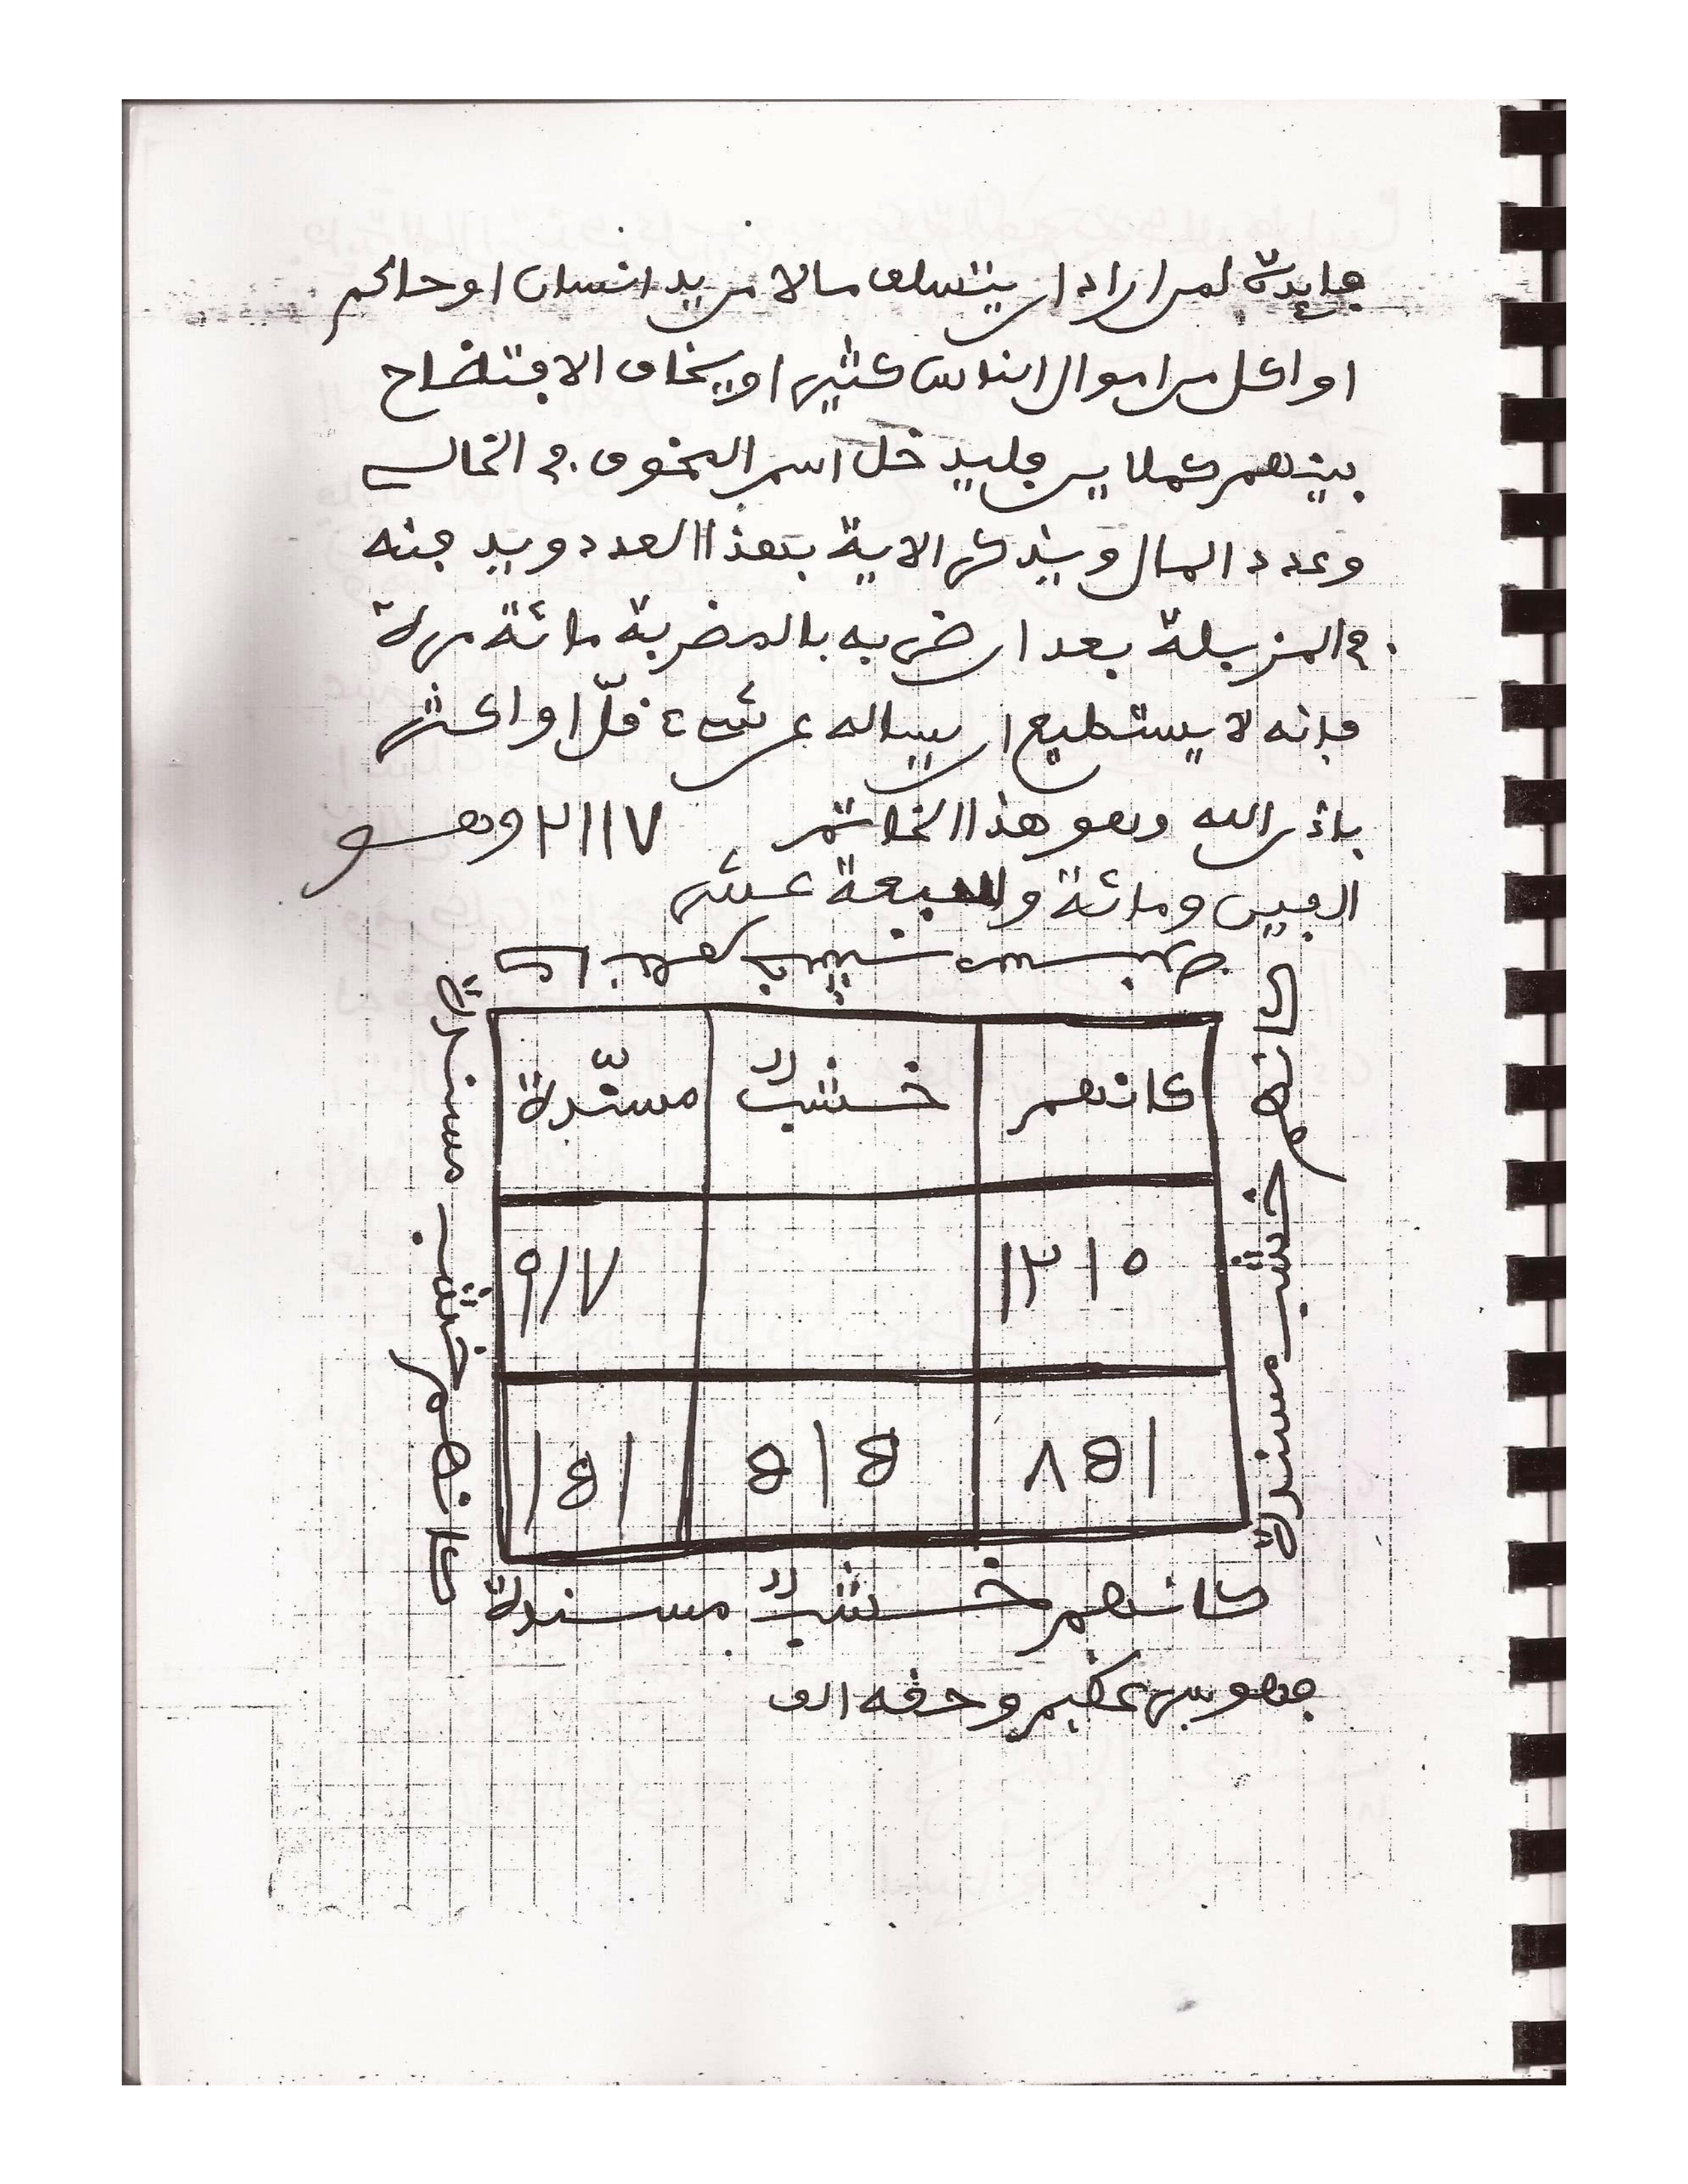 فايدة لمن اراد ان يتسلف مالا من يد انسان او حاكم
او اكل من اموال الناس كثير او يخاف الافتضاح
بينهم فليدخل اسم المخوف في الخالي
وعدد المال ويذكر الاية بهذا العدد ويدفنه
في المزبلة بعد ان ضربه بالمضربة مائة مرة
فإنه لا يستطيع ان يساله عن شيء قلّ او اكثر
باذن الله وهو هذا الخاتم ٢١١٧ وهو
الفين ومائة وسبعة عشر
كانهم خشب مسندة
كانهم خشبٌ مسنّدة
كانهم خشب مسندة
١٢١٥ ٩١٧
كانهم خشب مسندة
كانهم خشبٌ مسندة
فهو سر عظيم وحقه الف